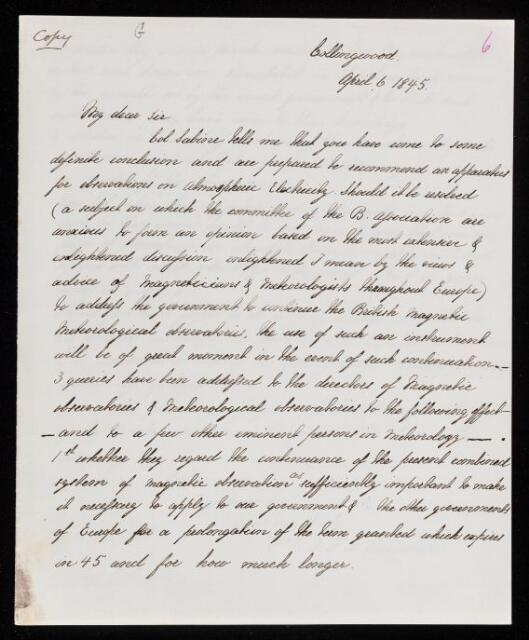 Copy
G
6
Collingwood.
April. 6 1845.
My dear sir
Col. Sabine tells me that you have come to some
definite conclusion and are prepared to recommend an apparatus
for observations on Atmospheric Electricity Should it be resolved
(a subject on which the committee of the B. association are
anxious to form an opinion based on the most extensive &
enlightened discussion enlightened I mean by the views &
advice of Magneticians & Meteorologists throughout Europe)
to address the government to continue the British Magnetic
Meteorological observatories, the use of such an instrument
will be of great moment in the event of such continuation.-
3 queries have been addressed to the directors of Magnetic
observatories & Meteorological observatories to the following effect-
- and to a few other eminent persons in Meteorology - .
1st whether they regard the continuance of the present combined
system of magnetic observation as sufficiently important to make
it necessary to apply to our government & the other governments
of Europe for a prolongation of the term granted which expires
in 45 and for how much longer.